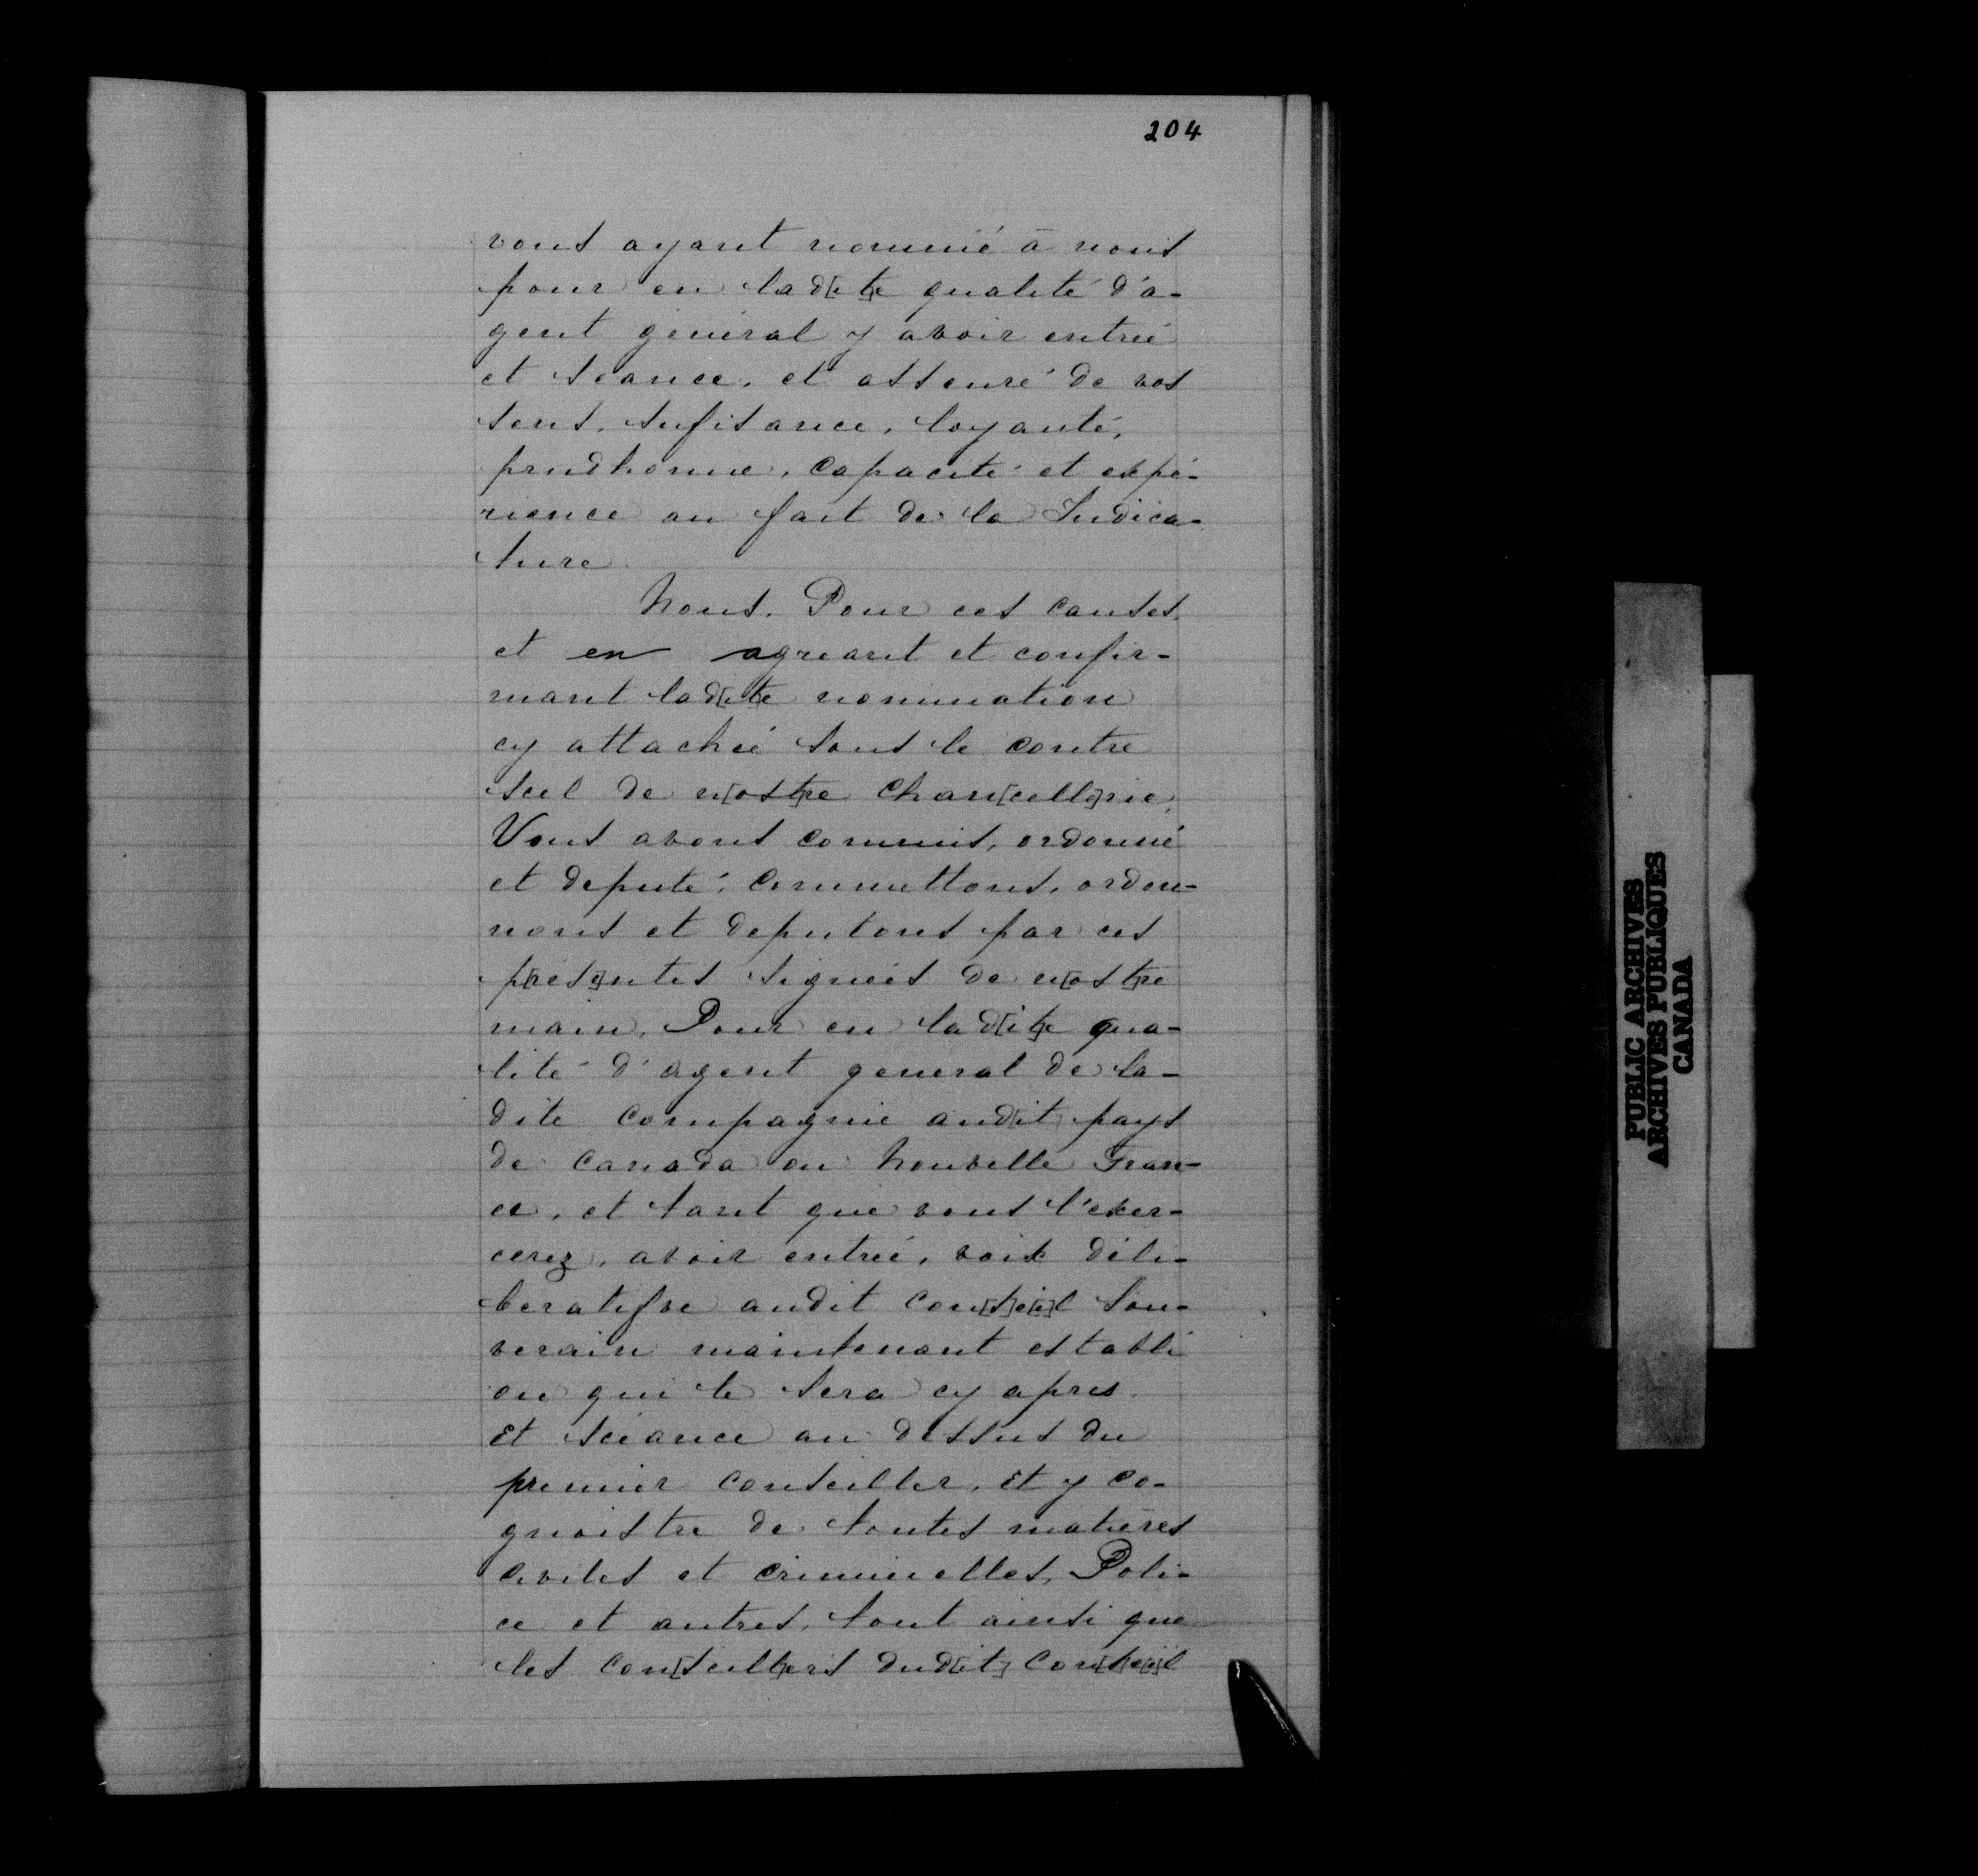 204
vous ayant nommé à nous
pour en lad[it]e qualité d'a-
gent général y avoir entrée
et séance, et asseuré de vos
sens, sufisance, loyauté,
prudhomie, capacité et expé-
rience au fait de la Judica-
ture.
Nous, Pour ces causes,
et en agreant et confir-
mant lad[it]e nomination
cy attachée sous le contre
scel de n[ost]re chan[celle]rie,
Vous avons commis, ordonné
et deputé, commettons, ordon-
nons et deputons par ces
p[rése]ntes signées de n[ost]re
main, Pour en lad[it]e qua-
lité d'agent general de la-
dite compagnie aud[it] pays
de Canada ou Nouvelle Fran-
ce, et tant que vous l'exer-
cerez, avoir entrée, voix déli-
beratifve audit con[s]e[i]l Sou-
verain maintenant establi
ou qui le sera cy apres.
Et scéance au dessus du
premier conseiller, Et y co-
gnoistre de toutes matières
civiles et criminelles, Poli-
ce et autres, tout ainsi que
les con[seill]ers dud[it] con[s]e[i]l
PUBLIC ARCHIVES
ARCHIVES PUBLIQUES
CANADA